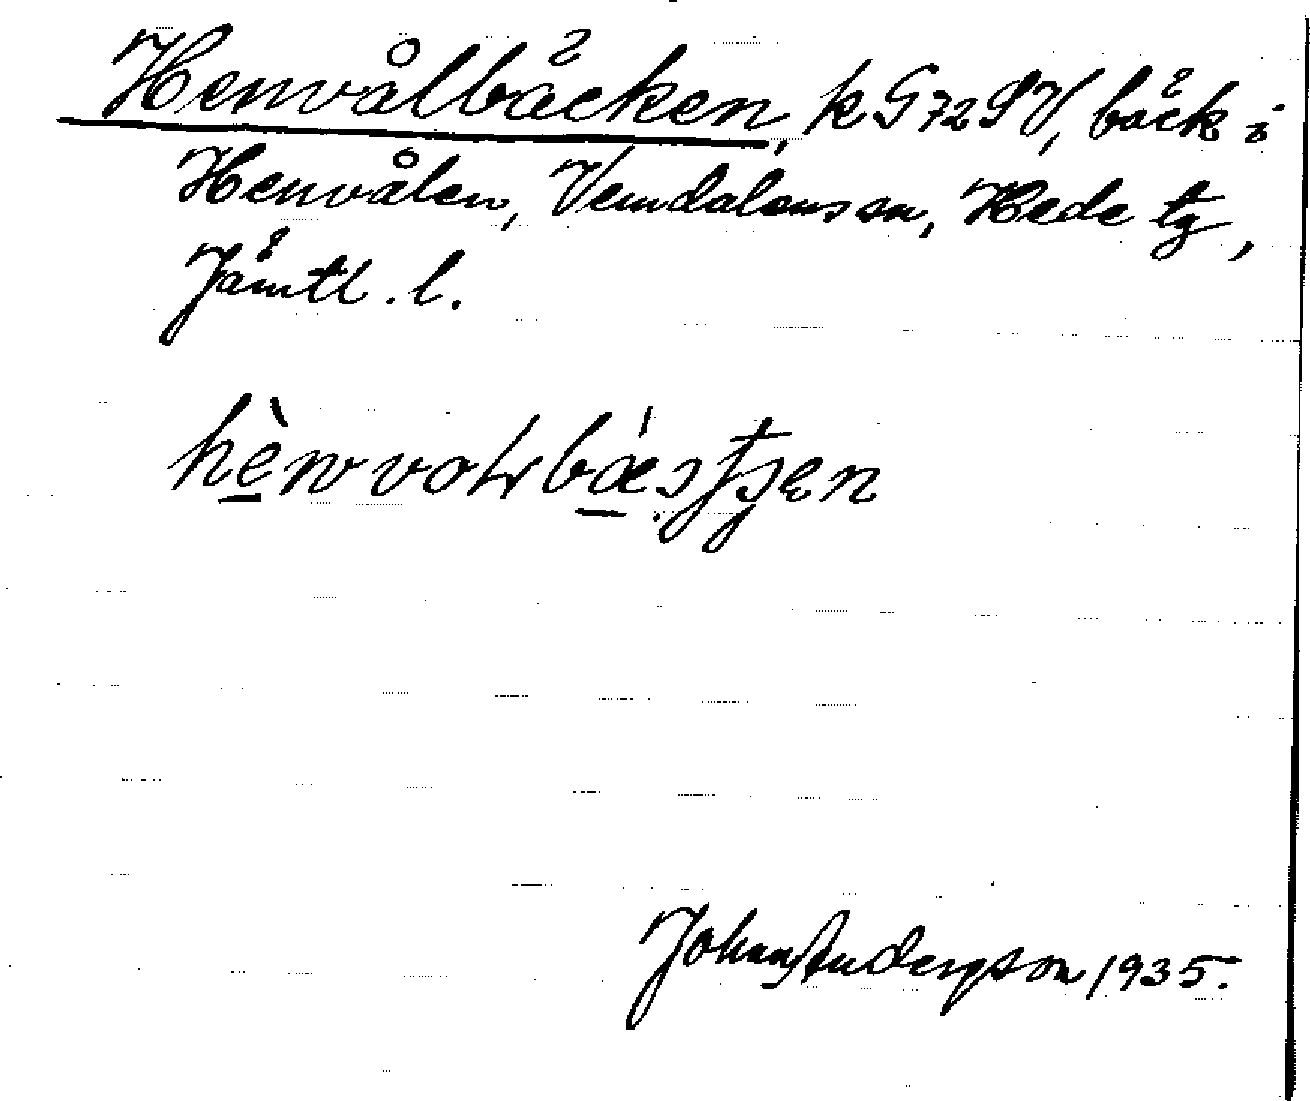 Henvålbäcken, k G 72 SV, bäck i
Henvålen, Vemdalens sn, Hede tg,
Jämtl. l.
Johan Andersson 1935.